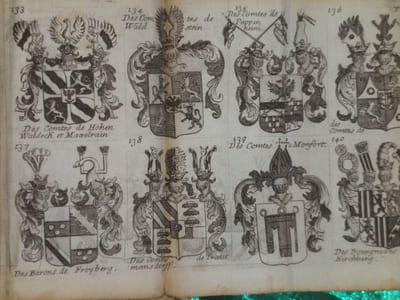 133
Des Comtes de Hohen
Waldeck et Maxelrain
134
Des Comtes de
Wald stein
135
Des Comtes de
Pappen
heim
136
de
Comtes de
137
Des Barons de Freyberg.
138
Des Comtes de Traut
mansdorff
139
Des Comtes Monfort.
140
Des Bourgraves
Kirchburg.